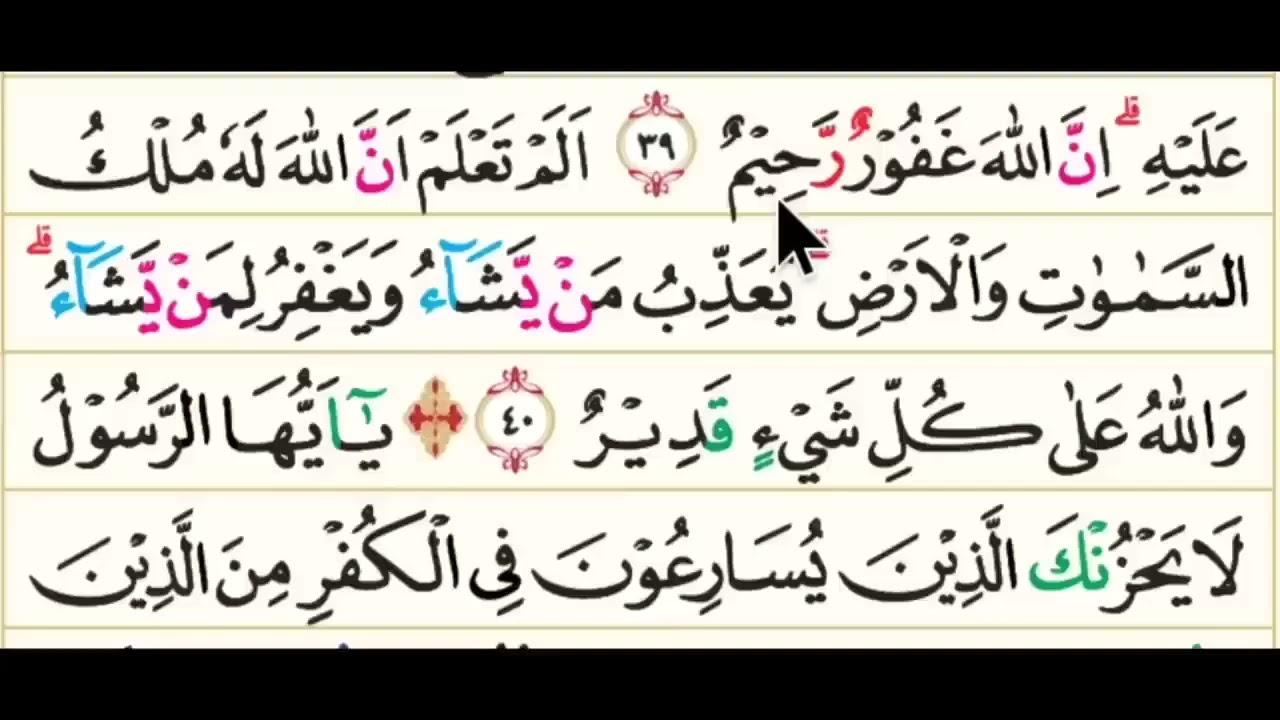 عَلَيْهِ ۗ اِنَّ اللّٰهَ غَفُوْرٌ رَّحِيْمٌ ٣٩ اَلَمْ تَعْلَمْ اَنَّ اللّٰهَ لَهٗ مُلْكُ
السَّمٰوٰتِ وَالْاَرْضِۗ يُعَذِّبُ مَنْ يَّشَاۤءُ وَيَغْفِرُ لِمَنْ يَّشَاۤءُ ۗ
وَاللّٰهُ عَلٰى كُلِّ شَيْءٍ قَدِيْرٌ ٤٠ يٰٓاَيُّهَا الرَّسُوْلُ
لَا يَحْزُنْكَ الَّذِيْنَ يُسَارِعُوْنَ فِى الْكُفْرِ مِنَ الَّذِيْنَ